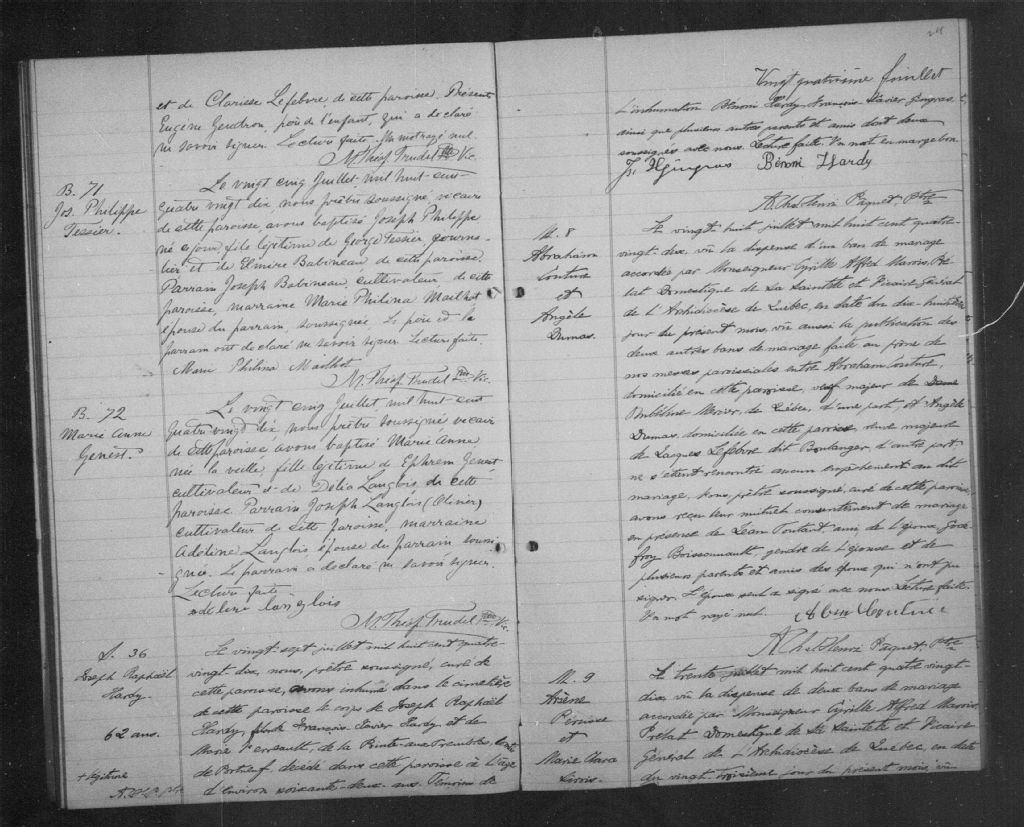 et de Clarisse Lefebvre, de cette paroisse. Présent
Eugène Gendron, père de l'enfant, qui a déclaré
ne savoir signer. Lecture faite. Un mot rayé nul.
N. Théop. Trudel Ptre Vic.
B. 71
Jos. Philippe
Tessier.
Le vingt cinq Juillet, mil huit-cent-
quatre vingt dix, nous prêtre soussigné, vicaire
de cette paroisse, avons baptisé Joseph Philippe
né ce jour, fils légitime de George Tessier, journa-
lier et de Elmire Babineau, de cette paroisse.
Parrain Joseph Babineau, cultivateur, de cette
paroisse, marraine Marie Philina Mailhot
épouse du parrain, soussignée. Le père et le
parrain ont déclaré ne savoir signer. Lecture faite.
Marie Philina Mailhot
N. Théop. Trudel Ptre Vic.
B. 72
Marie Anne
Genest.
Le vingt cinq Juillet mil huit-cent
quatre vingt dix, nous prêtre soussigné vicaire
de cette paroisse avons baptisé Marie Anne
née la veille, fille légitime de Ephrem Genest
cultivateur et de Délia Langlois de cette
paroisse. Parrain Joseph Langlois (Olivier)
cultivateur de cette paroisse, marraine
Adeline Langlois, épouse du parrain soussi-
gnée. Le parrain a déclaré ne savoir signer.
Lecture faite
adeline langlois
N. Théop. Trudel Ptre Vic.
S. 36
Joseph Raphaël
Hardy.
62 ans.
+ légitime
Le vingt-sept juillet mil huit cent quatre-
vingt-dix, nous, prêtre soussigné, curé de
cette paroisse, avons inhumé dans le cimetière
de cette paroisse le corps de Joseph Raphaël
Hardy, fils de François Xavier Hardy, et de
Marie de la Pointe-aux-Trembles, comté
de Portneuf, décédé dans cette paroisse à l'âge
d'environ soixante-deux ans. Témoins de
Vingt quatrième feuillet
l'inhumation Bénoni Hardy, François-Xavier Gingras,
ainsi que plusieurs autres parents et amis dont deux
soussignés avec nous. Lecture faite. Un mot en marge bon.
F. X Gingras Bénoni Hardy
A. Chs. Henri Paquet Ptre
M. 8
Abraham
Couture
et
Angèle
Dumas.
Le vingt huit juillet mil huit cent quatre-
vingt-dix, vu la dispense d'un ban de mariage
accordée par Monseigneur Cyrille Alfred Marois, Pré-
lat Domestique de Sa Sainteté et Vicaire Général
de l'Archidiocèse de Québec, en date du dix-huitième
jour du présent mois, vu aussi la publication des
deux autres bans de mariage faite au prône de
nos messes paroissiales entre Abraham Couture,
domicilié en cette paroisse, veuf majeur de Dame
Mercier, de Québec, d'une part, et Angèle
Dumas, domiciliée en cette paroisse, veuve majeure
de Jacques Lefebvre dit Boulanger, d'autre part
ne s'étant rencontré aucun empêchement au dit
mariage, nous, prêtre soussigné, curé de cette paroisse,
avons reçu leur mutuel consentement de mariage
en présence de Jean Toutant ami, de l'époux, Gode-
froy Boissonnault, gendre de l'épouse et de
plusieurs parents et amis des époux qui n'ont pu
signer. L'époux seul a signé avec nous. Lecture faite.
Un mot rayé nul. Abm Couture
A. Chs. Henri Paquet, Ptre
M. 9
Arsène
et
Marie
Le trente juillet mil huit cent quatre vingt-
dix, vu la dispense de deux bans de mariage
accordée par Monseigneur Cyrille Alfred Marois,
Prélat Domestique de Sa Sainteté et Vicaire
Général de l'Archidiocèse de Québec, en date
du vingt troisième jour du présent mois, vu